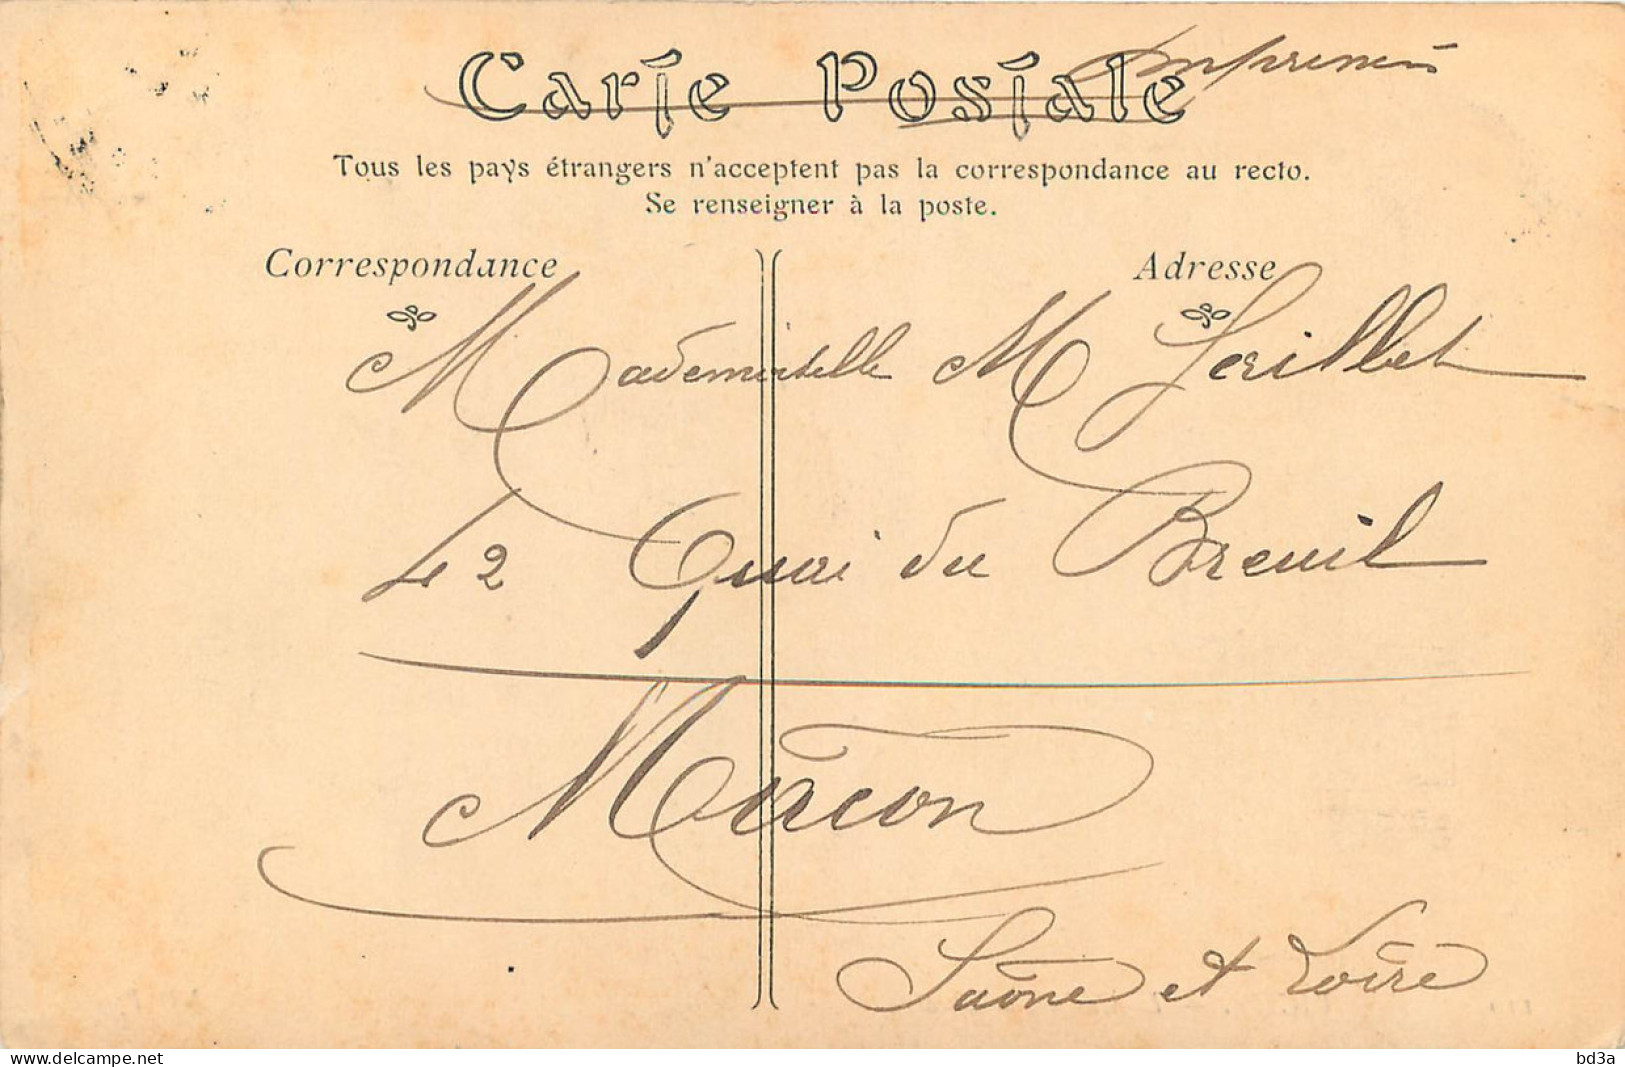 Imprimés
Carte Postale
Tous les pays étrangers n'acceptent pas la correspondance au recto.
Se renseigner à la poste.
Correspondance
Adresse
Mademoiselle M
42 Quai du Breuil
Mâcon
Saône et Loire
www.delcampe.net
bd3a